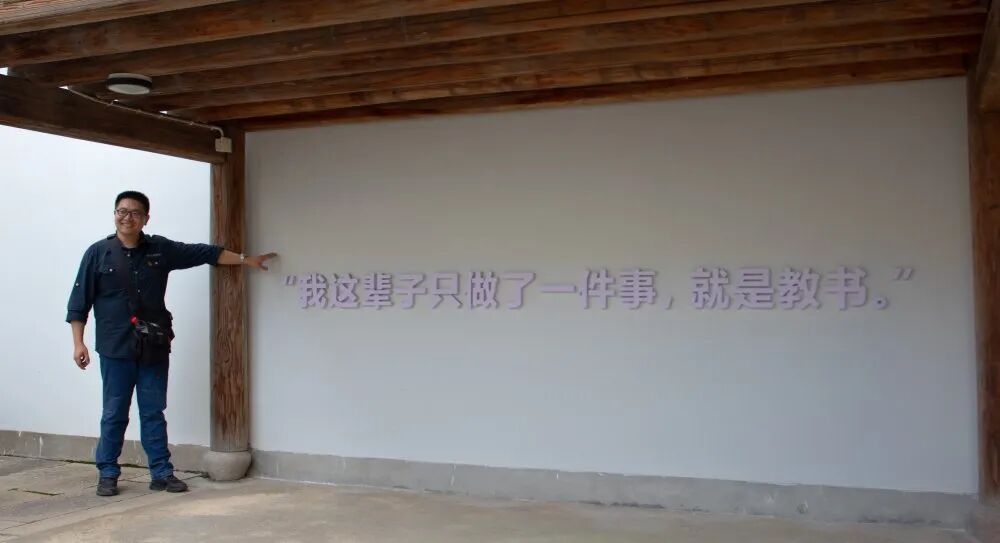 “我这辈子只做了一件事，就是教书。”